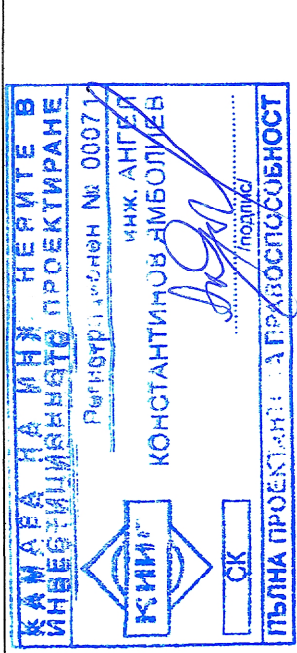 КАМАРА НА ИНЖЕНЕРИТЕ В
ИНВЕСТИЦИОННОТО ПРОЕКТИРАНЕ
Регистрационен № 00071
инж. АНГЕЛ
КОНСТАНТИНОВ
/подпис/
КИИП
СК
ПЪЛНА ПРОЕКТАНТСКА ПРАВОСПОСОБНОСТ